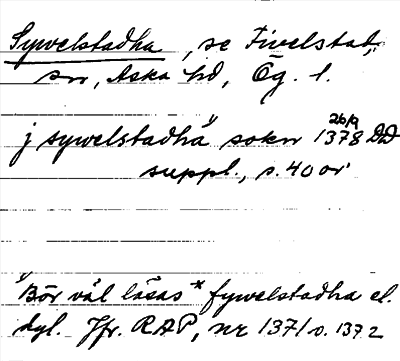 Sywelstadha, se Fivelstad,
sn, Aska hd, Ög. l.
j sywelstadha" sokn 1378 26/9 DD
suppl., s. 40 or
"Bör väl läsas * fywelstadha el.
dyl. Jfr. RAP, nr 1371 o. 1372